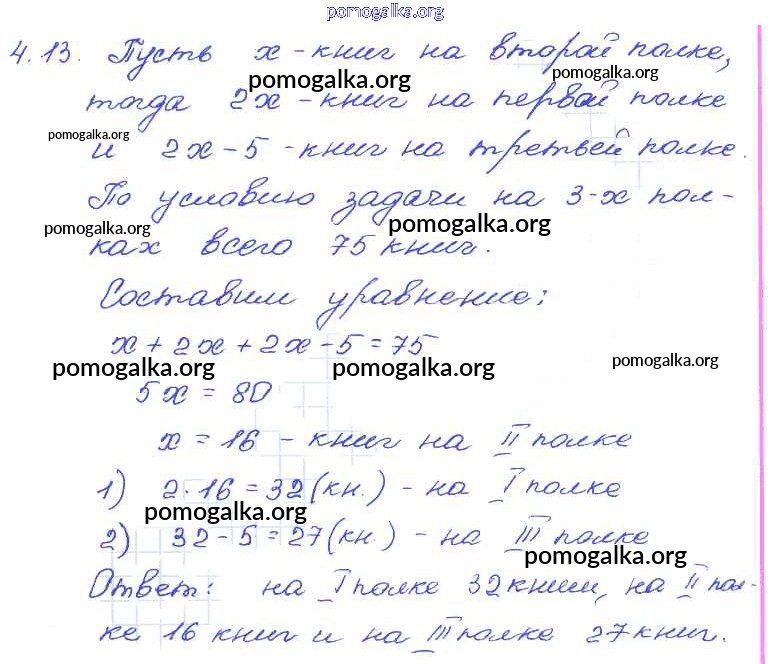 pomogalka.org
4.13. Пусть х - книг на второй полке,
pomogalka.org pomogalka.org
тогда 2х - книг на первой полке
pomogalka.org
и 2х - 5 - книг на третьей полке.
По условию задачи на 3-х пол-
pomogalka.org pomogalka.org
ках всего 75 книг.
Составим уравнение:
х + 2х + 2х - 5 = 75
pomogalka.org pomogalka.org pomogalka.org
5х = 80
х = 16 - книг на II полке
1) 2·16 = 32 (кн.) - на I полке
pomogalka.org
2) 32 - 5 = 27 (кн.) - на III полке
pomogalka.org
Ответ: на I полке 32 книги, на II пол-
ке 16 книг и на III полке 27 книг.